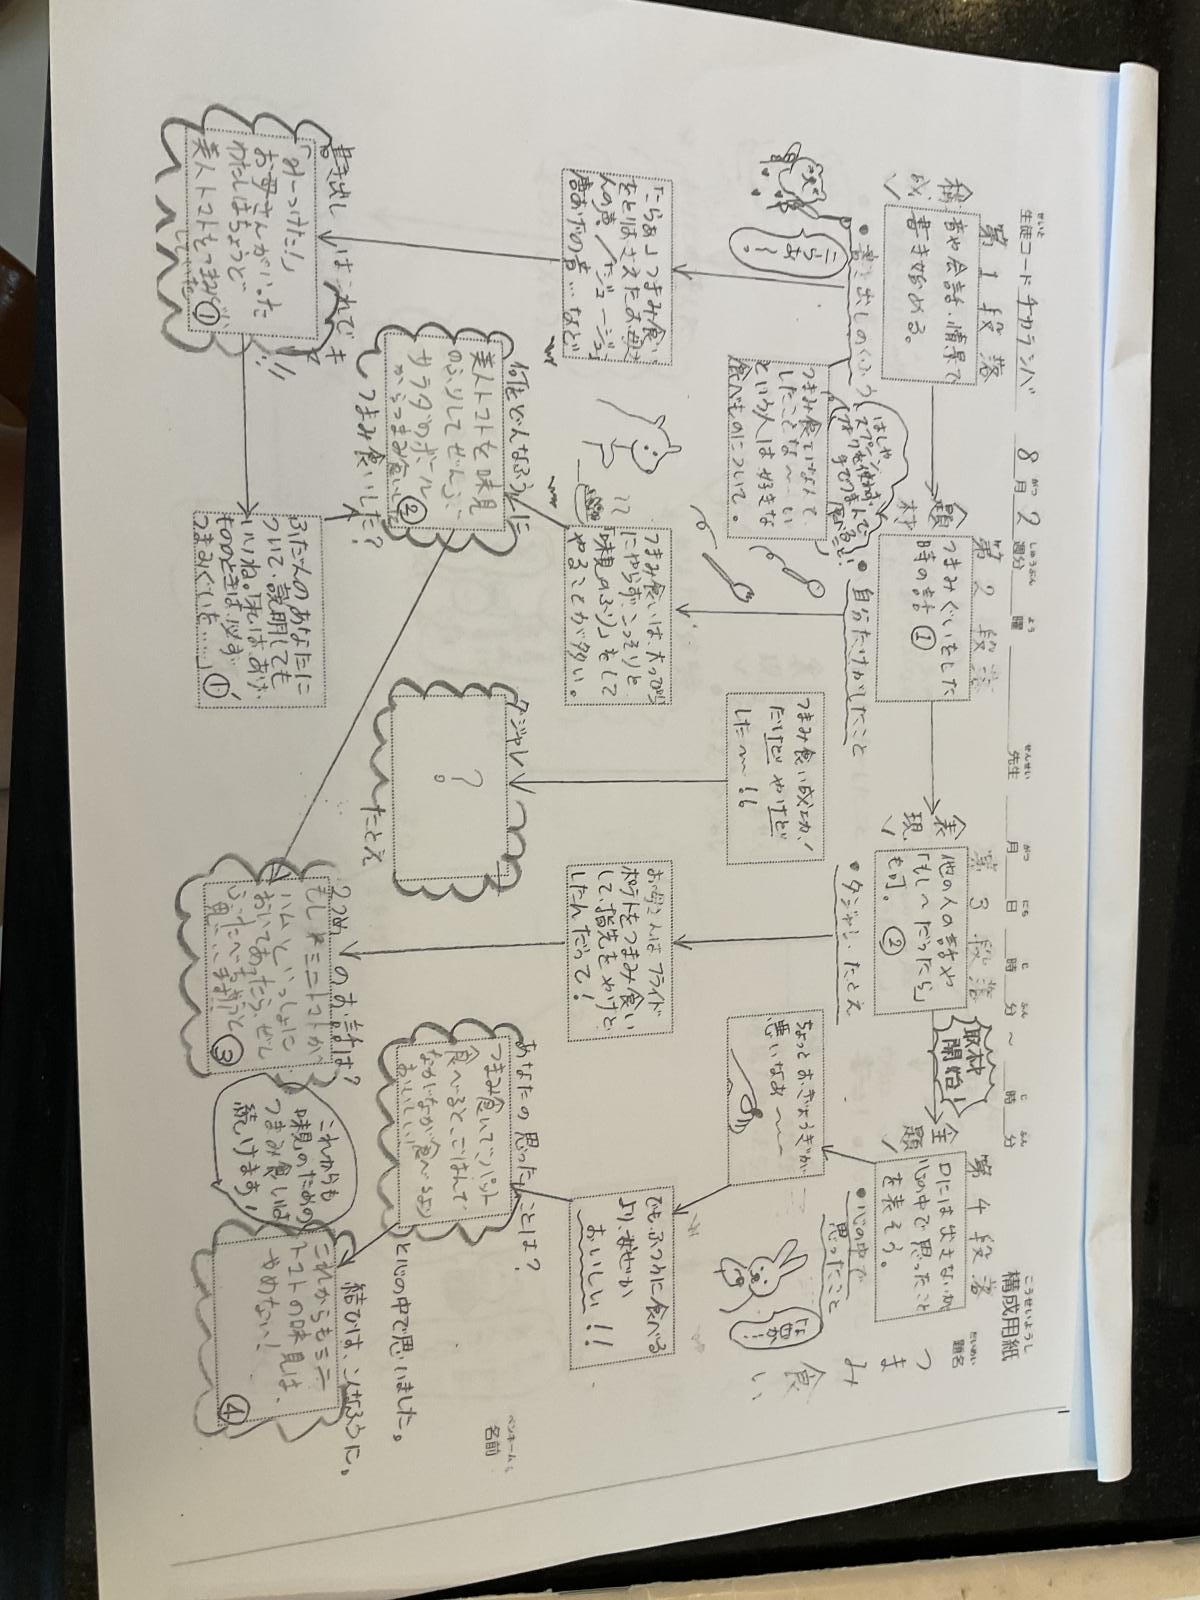 構成用紙
題名
つまみ食い
生徒コード チカランバ
8月2週分
曜
先生
月 日 時 分 ~ 時 分
ペンネーム
名前
第1段落
構成
音や会話・情景で
書き始める。
第2段落
題材
つまみぐいをした
時の話 ①
第3段落
表現
他の人の話や
「もし~だったら」
も可。 ②
取材
開始!
第4段落
主題
口には出さないが
心の中で思ったこと
を表そう。
・書き出しのくふう
こらあ~
「こらぁ」つまみ食い
をとばさえたお母さ
んの声/「ジュージュ」
唐あげの音…など
書き出しはこれでキマリ
「みーつけた!」
お母さんがいった
わたしはちょうど
美人トマトをつまみぐい
していた ①
はしや
スプーン、
フォークを使わず
手でつまんで
つまみ食いなんて、
したことな~~い
という人は好きな
食べものについて。
・自分だけがしたこと
つまみ食いは、大っぴら
にやらず、こっそりと
「味見のふり」をして
やることが多い。
何をどんなふうに
美人トマトを味見
のふりしてぜんぶ
サラダのボール
からつまみ食いした ②
つまみ食いした?
ふだんのあなたに
ついて、説明しても
いいね。「私は、あげ
もののときは、必ず
つまみぐいを……」①
つまみ食い成功!
だけど やけど
した~~!!
ダジャレ
?
たとえ
・ダジャレ・たとえ
お母さんはフライド
ポテトをつまみ食い
して、指先をやけど
したんだって!
2つめのお話は?
もしもミニトマトが
ハムといっしょに
おいてあったら、ぜん
③
・心の中で
思ったこと
ちょっとおぎょうぎが
悪いなあ~~
でも、ふつうに食べる
より、なぜか
おいしい!!
なぜか…
あなたの思ったことは?
つまみ食いでパット
食べると、ごはんで
ながなが食べるより
おいしい
と心の中で思いました。
これからも
味見のための
つまみ食いは
続けます!
結びは、こんなふうに。
これからもミニ
トマトの味見は、
やめない! ④